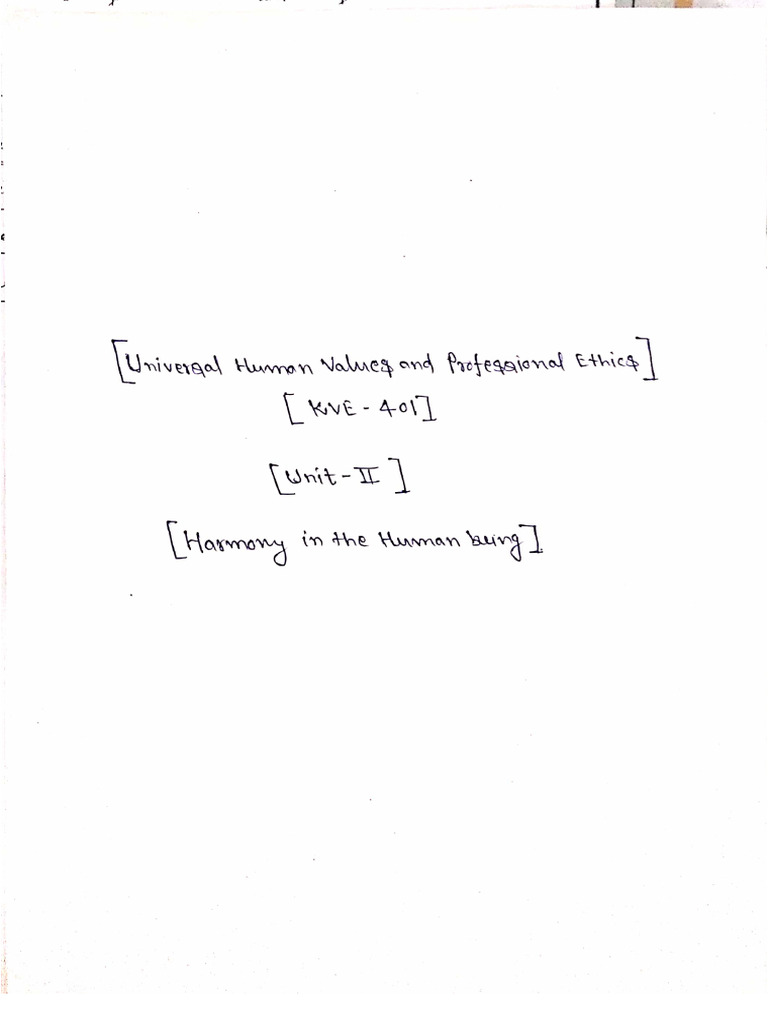 [Universal Human Values and Professional Ethics]
[KVE - 401]
[Unit - II]
[Harmony in the Human being].